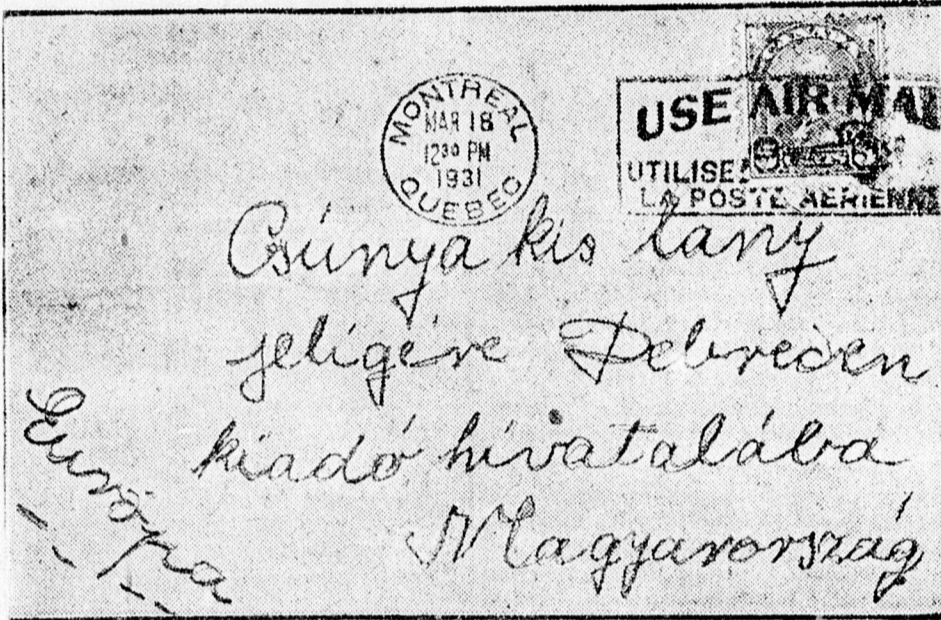 MONTREAL
MAR 18
12³⁰ PM
1931
QUEBEC
USE AIR MAI
UTILISE
LA POSTE AERIENNE
Csúnya kis lany
jeligére Debrecen
kiadó hivatalába
Magyarország
Európa